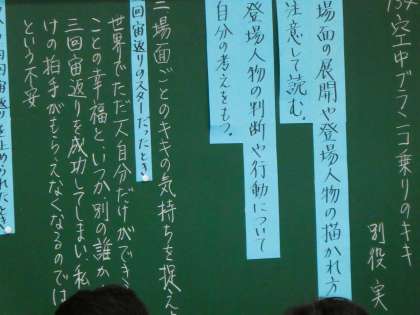 空中ブランコ乗りのキキ
別役実
場面の展開や登場人物の描かれ方
注意して読む。
登場人物の判断や行動について
自分の考えをもつ。
場面ごとのキキの気持ちを捉え
回宙返りのスターだったとき
世界でただ一人自分だけができ
ことの幸福と、いつか別の誰か
三回宙返りを成功してしまい、私
けの拍手がもらえなくなるのでは
という不安
回宙返りを止められたとき